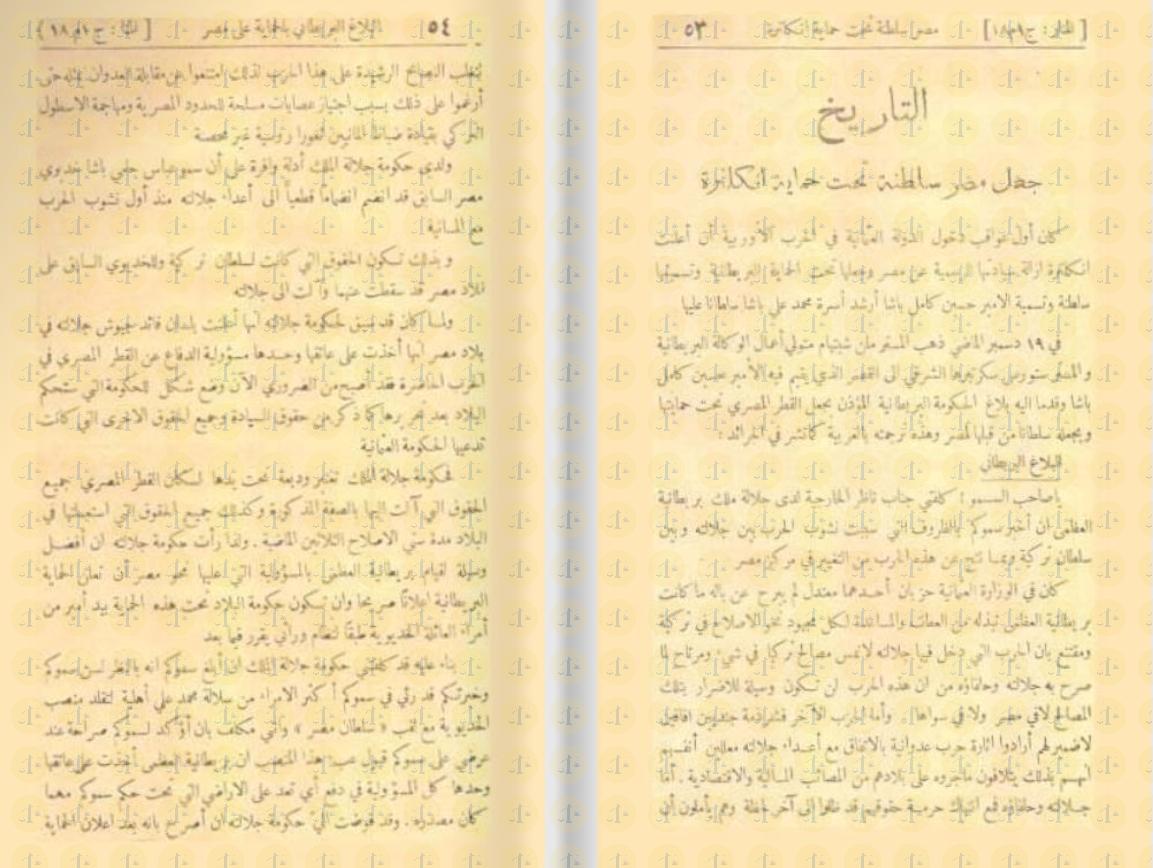 [ المنار : ج ١ م ١٨ ] مصر سلطنة تحت حماية انكلترة ٥٣
التاريخ
جعل مصر سلطنة تحت حماية انكلترة
كان أول عواقب دخول الدولة العثمانية في الحرب الأوربية أن أعلنت
انكلترة ازالة سيادتها الرسمية عن مصر وجعلها تحت الحماية البريطانية وتسميتها
سلطنة وتسمية الامير حسين كامل باشا أرشد أسرة محمد علي باشا سلطانا عليها
في ١٩ دسمبر الماضي ذهب المستر ملن شيتهام متولي أعمال الوكالة البريطانية
والمستر ستورس سكرتيرها الشرقي الى القصر الذي يقيم فيه الأمير حسين كامل
باشا وقدما اليه بلاغ الحكومة البريطانية المؤذن بجعل القطر المصري تحت حمايتها
وبجعله سلطانا من قبلها لمصر وهذه ترجمته بالعربية كما نشر في الجرائد :
البلاغ البريطاني
ياصاحب السمو : كلفني جناب ناظر الخارجية لدى جلالة ملك بريطانية
العظمى ان أخبر سموكم بالظروف التي سببت نشوب الحرب بين جلالته وبين
سلطان تركية وبما نتج عن هذه الحرب من التغيير في مركز مصر
كان في الوزارة العثمانية حزبان أحدهما معتدل لم يبرح عن باله ما كانت
بريطانية العظمى تبذله من العطف والمساعدة لكل مجهود نحو الاصلاح في تركية
ومقتنع بان الحرب التي دخل فيها جلالته لاتمس مصالح تركيا في شيء ومرتاح لما
صرح به جلالته وحلفاؤه من ان هذه الحرب لن تكون وسيلة للاضرار بتلك
المصالح لا في مصر ولا في سواها . وأما الحزب الآخر فشرذمة جنديين أفاقيل
لاضمير لهم أرادوا اثارة حرب عدوانية بالاتفاق مع أعداء جلالته معللين أنفسهم
انهم بذلك يتلافون ماجروه على بلادهم من المصائب المالية والاقتصادية . أما
جلالته وحلفاؤه فمع انتهاك حرمة حقوقهم قد ظلوا الى آخر لحظة وهم يأملون أن
٥٤ البلاغ البريطاني بالحماية على مصر [ المنار : ج ١ م ١٨ ]
تتغلب النصائح الرشيدة على هذا الحزب لذلك امتنعوا عن مقابلة العدوان بمثله حتى
أرغموا على ذلك بسبب اجتياز عصابات مسلحة للحدود المصرية ومهاجمة الاسطول
التركي بقيادة ضباط ألمانيين ثغورا روسية غير محصنة
ولدى حكومة جلالة الملك أدلة وافرة على أن سمو عباس حلمي باشا خديوي
مصر السابق قد انضم انضماماً قطعياً الى أعداء جلالته منذ أول نشوب الحرب
مع المانية
وبذلك تكون الحقوق التي كانت لسلطان تركية وللخديوي السابق على
بلاد مصر قد سقطت عنهما وآلت الى جلالته
ولما كان قد سبق لحكومة جلالته أنها أعلنت بلسان قائد جيوش جلالته في
بلاد مصر أنها أخذت على عاتقها وحدها مسؤولية الدفاع عن القطر المصري في
الحرب الحاضرة فقد أصبح من الضروري الآن وضع شكل للحكومة التي ستحكم
البلاد بعد تحريرها كما ذكر من حقوق السيادة وجميع الحقوق الاخرى التي كانت
تدعيها الحكومة العثمانية
فحكومة جلالة الملك تعتبر وديعة تحت يدها لسكان القطر المصري جميع
الحقوق التي آلت اليها بالصفة المذكورة وكذلك جميع الحقوق التي استعملتها في
البلاد مدة سني الاصلاح الثلاثين الماضية . ولذا رأت حكومة جلالته ان أفضل
وسيلة لقيام بريطانية العظمى بالمسؤولية التي عليها نحو مصر أن تعلن الحماية
البريطانية اعلانًا صريحا وان تكون حكومة البلاد تحت هذه الحماية بيد أمير من
أمراء العائلة الخديوية طبقًا لنظام وراثي يقرر فيما بعد
بناء عليه قد كلفتني حكومة جلالة الملك ان أبلغ سموكم انه بالنظر لسن سموكم
وخبرتكم قد رئي في سموكم أكثر الامراء من سلالة محمد علي أهلية لتقلد منصب
الخديوية مع لقب « سلطان مصر » وانني مكلف بان أؤكد لسموكم صراحة عند
عرضي على سموكم قبول عبء هذا المنصب ان بريطانية العظمى أخذت على عاتقها
وحدها كل المسؤولية في دفع أي تعد على الاراضي التي تحت حكم سموكم مهما
كان مصدره . وقد فوضت اليّ حكومة جلالته ان أصرح بانه بعد اعلان الحماية